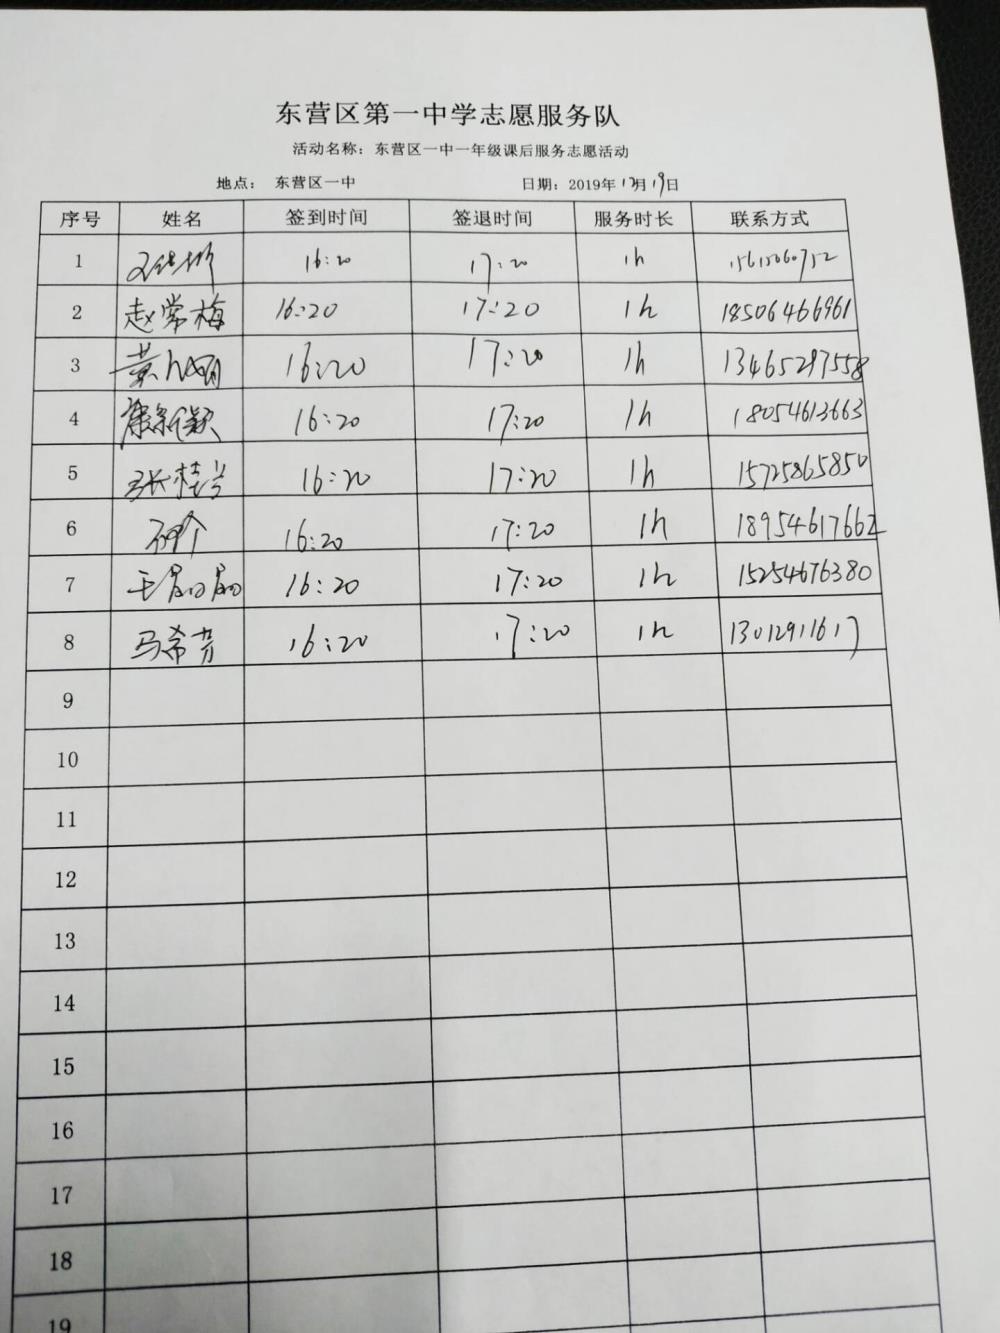 东营区第一中学志愿服务队
活动名称：东营区一中一年级课后服务志愿活动
地点： 东营区一中 日期：2019年12月19日
序号 姓名 签到时间 签退时间 服务时长 联系方式
1 16:20 17:20 1h
2 赵常梅 16:20 17:20 1h 18506466961
3 16:20 17:20 1h 13465297558
4 16:20 17:20 1h 18054613663
5 张桂兰 16:20 17:20 1h 15725865850
6 16:20 17:20 1h 18954617662
7 16:20 17:20 1h 15254676380
8 马希芳 16:20 17:20 1h 13012911617
9
10
11
12
13
14
15
16
17
18
19